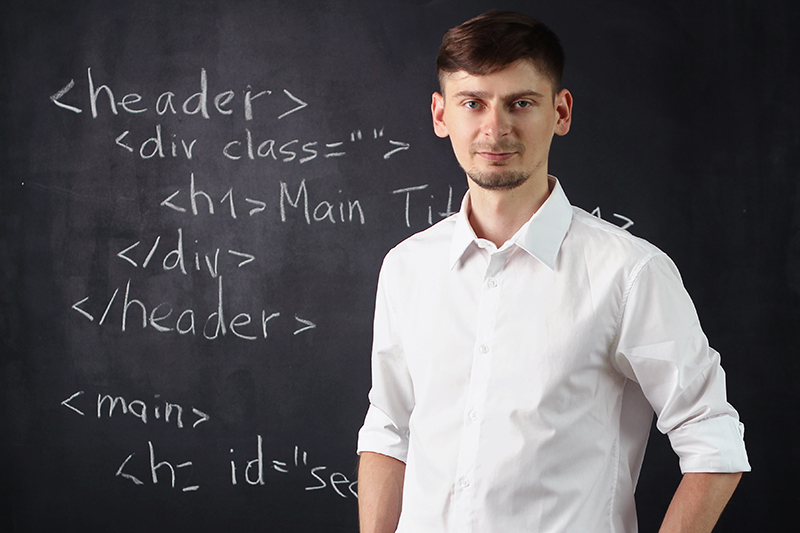 <header>
<div class="">
<h1> Main Tit
</div>
</header>
<main>
<h= id="se